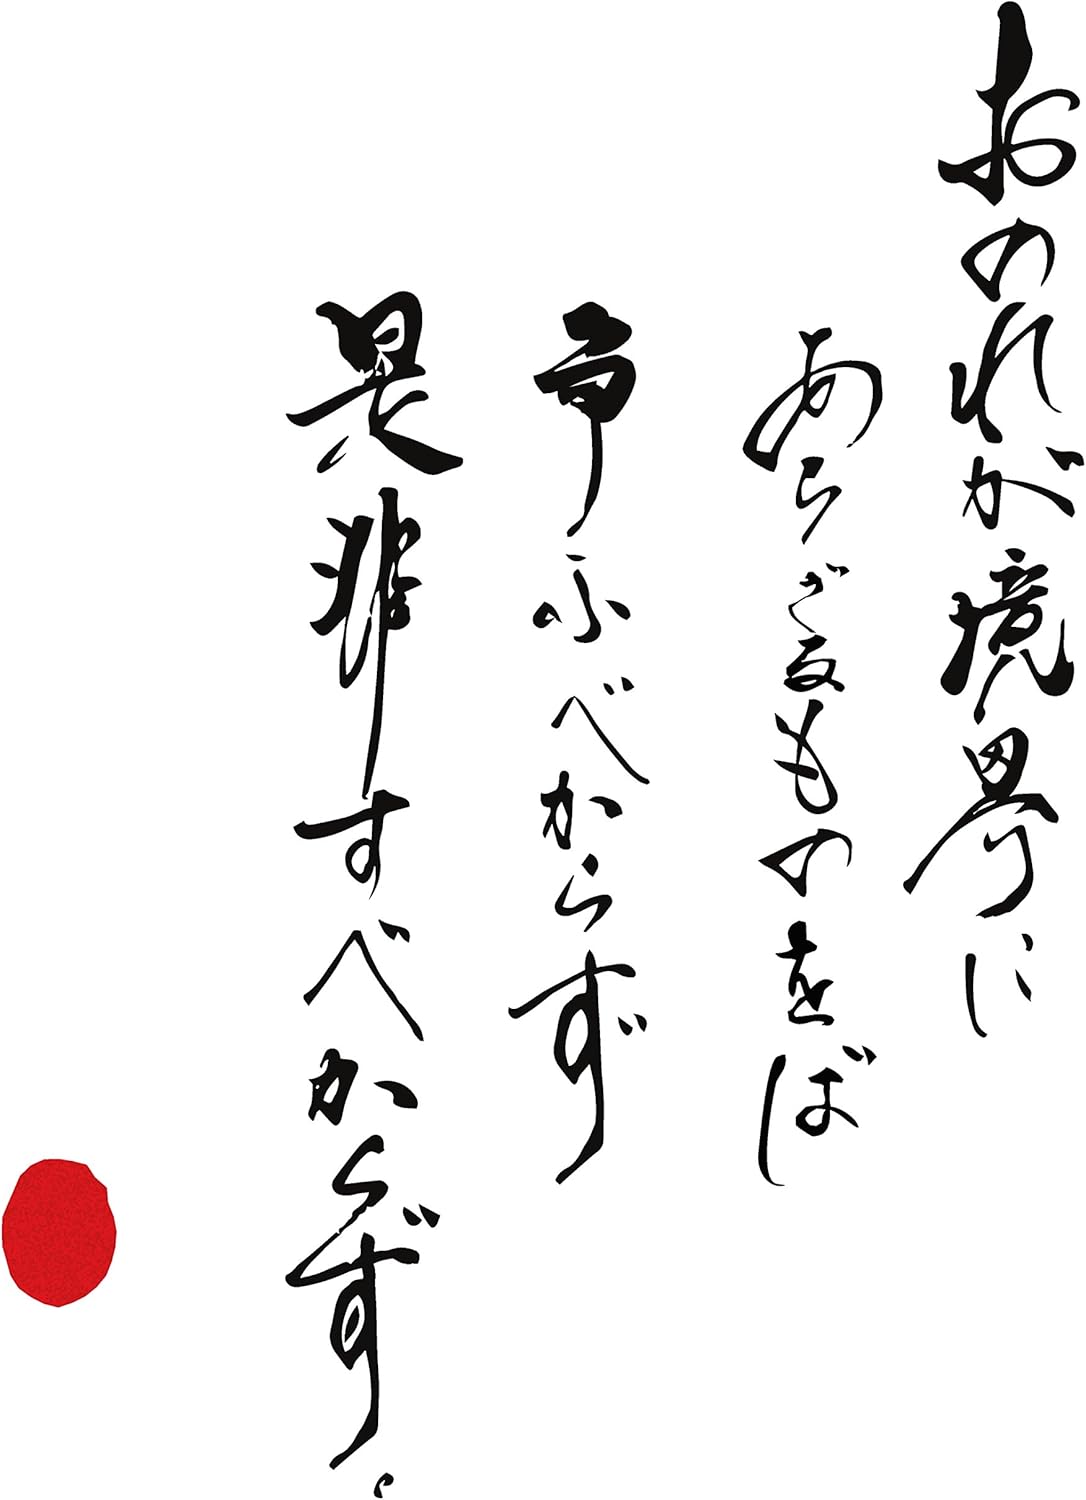 おのれが境界に
あらざるものをば
争ふべからず
是非すべからず。